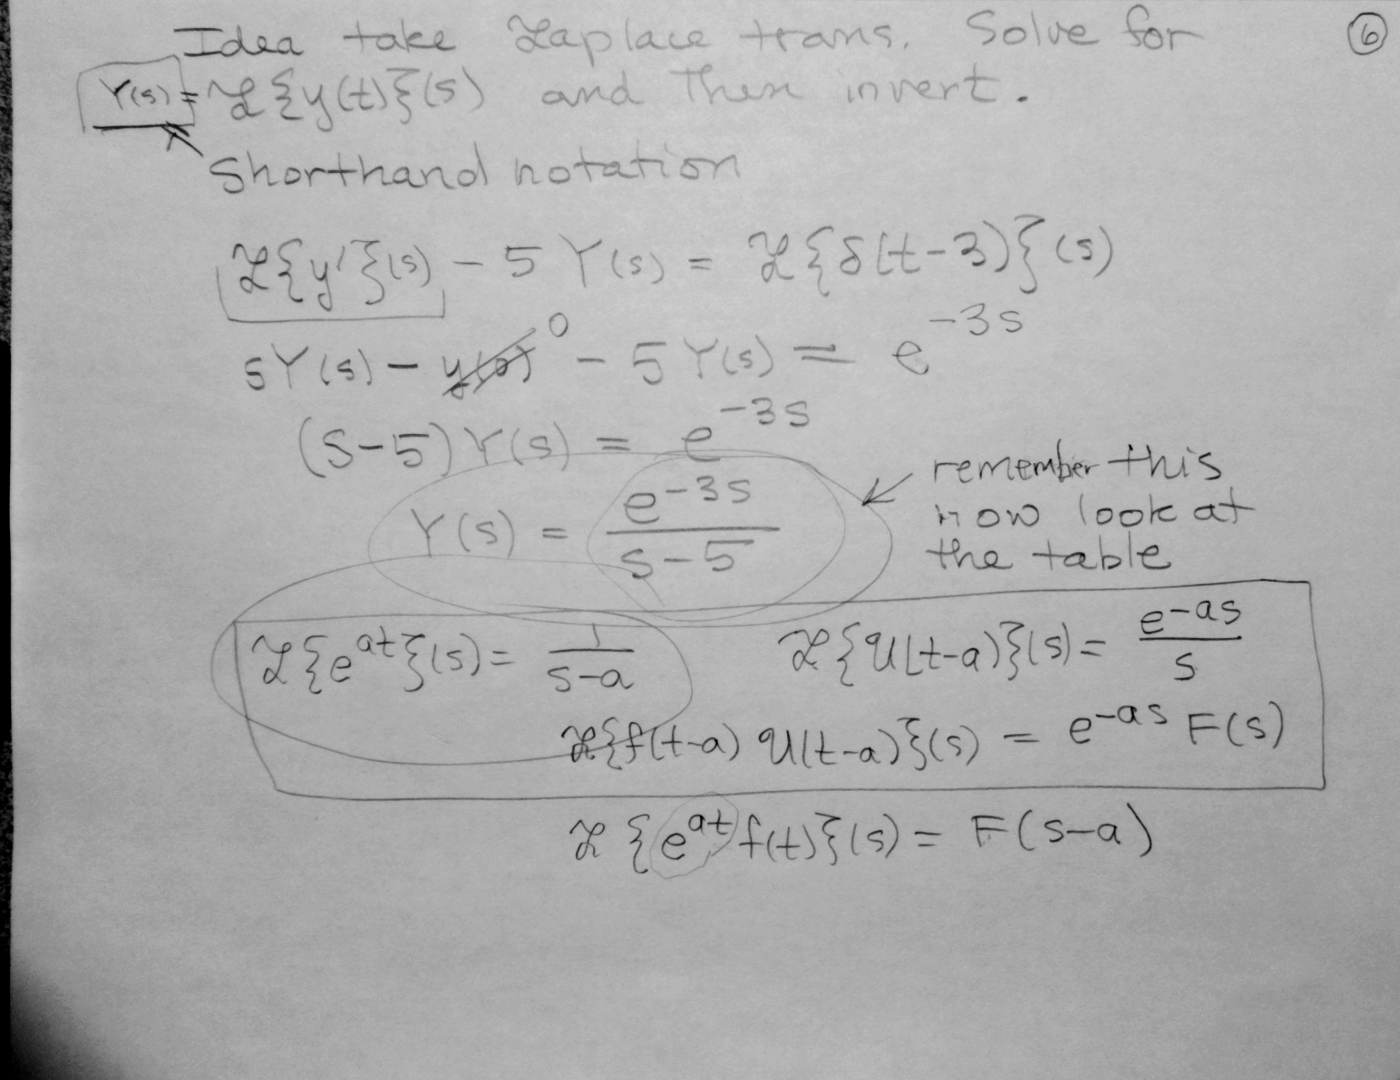 Idea take Laplace trans. Solve for
⑥
Y(s) = ℒ{y(t)}(s) and then invert.
Shorthand notation
ℒ{y'}(s) - 5 Y(s) = ℒ{δ(t-3)}(s)
sY(s) - y(0) 0 - 5 Y(s) = e^{-3s}
(s-5) Y(s) = e^{-3s}
Y(s) = e^{-3s} / (s-5)
remember this
now look at
the table
ℒ{e^{at}}(s) = 1/(s-a)
ℒ{𝒰(t-a)}(s) = e^{-as}/s
ℒ{f(t-a) 𝒰(t-a)}(s) = e^{-as} F(s)
ℒ{e^{at} f(t)}(s) = F(s-a)